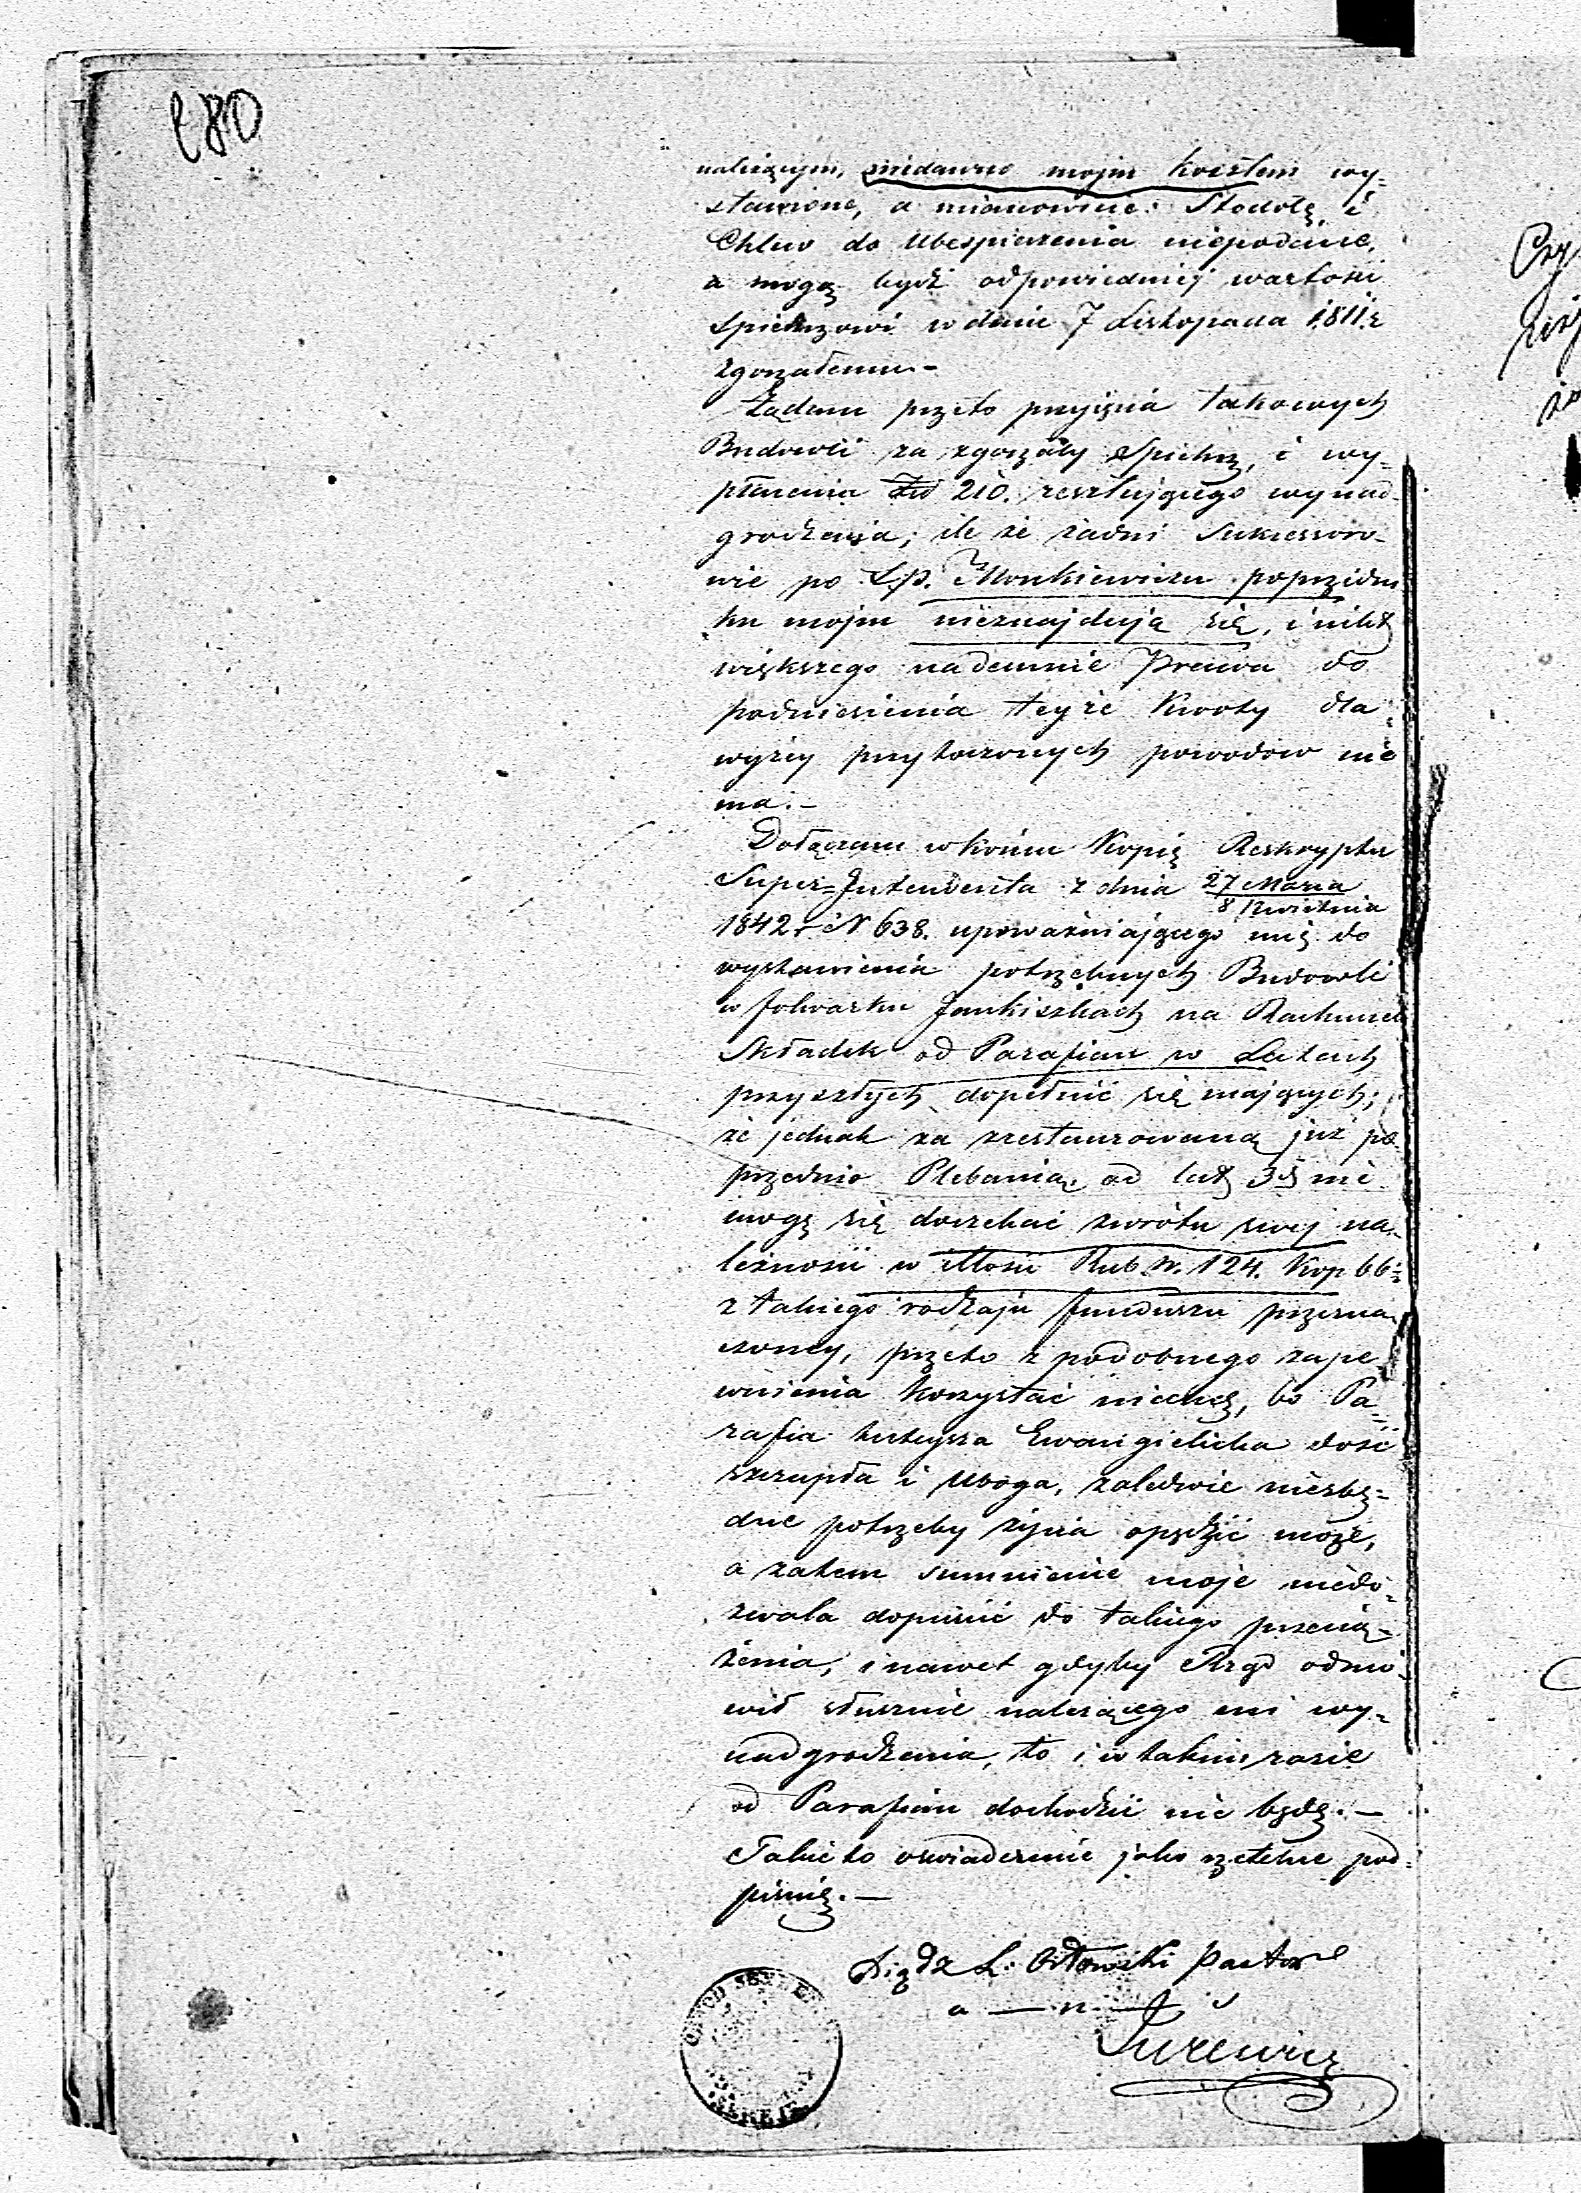 280
należącym, niedawno moim kosztem wy=
stawione, a mianowicie: Stodołę i
Chlew do ubespieczenia niepodane,
a mogą bydź odpowiedniej wartości
Spichrzowi w dniu 7 Listopada 1811 r
zgorzałemu.-
Żądam przeto przyjęcia takowych
Budowli za zgorzały Spichrz, i wy-
płacenia Złł 210. resztującego wynad-
grodzenia; ile że żadni Sukcessoro-
wie po Ś.p. Monkiewiczu poprzedni
ku moim nieznajdują się, i nikt
większego nademnie Prawa do
podniesienia teyże Kwoty dla
wyżej przytoczonych powodow nie
ma.-
Dołączam w końcu Kopię Reskryptu
Super=Intendenta z dnia 27 Marca
8 Kwietnia
1842 r N 638. upoważniającego mię do
wystawienia potrzebnych Budowli
w folwarku Jankiszkach na Rachunek
Składek od Parafian w Latach
przyszłych dopełnić się mających;
że jednak za zrestaurowaną już po-
przednio Plebanią, od lat 3ch nie
mogę się doczekać zwrotu swej na-
leżności w ilłości Rub. sr. 124. Kop 66
z takiego rodzaju funduszu przezna-
czoney, przeto z podobnego zape-
wnienia korzystać niechcę, bo Pa=
rafia tuteysza Ewangielicka dość
szczupła i uboga, zaledwie niezbę=
dne potrzeby życia opędzić może,
a zatem sumnienie moje niedo-
zwala dopuścić do takiego przecią-
żenia, i nawet gdyby Rząd odmó-
wił słusznie należącego mi wy-
nadgrodzenia, to i w takim razie
od Parafian dochodzić nie będę.-
Takie to oswiadczenie jako rzetelne pod-
pisuię.-
Xiądz L. Orłowski Pastor